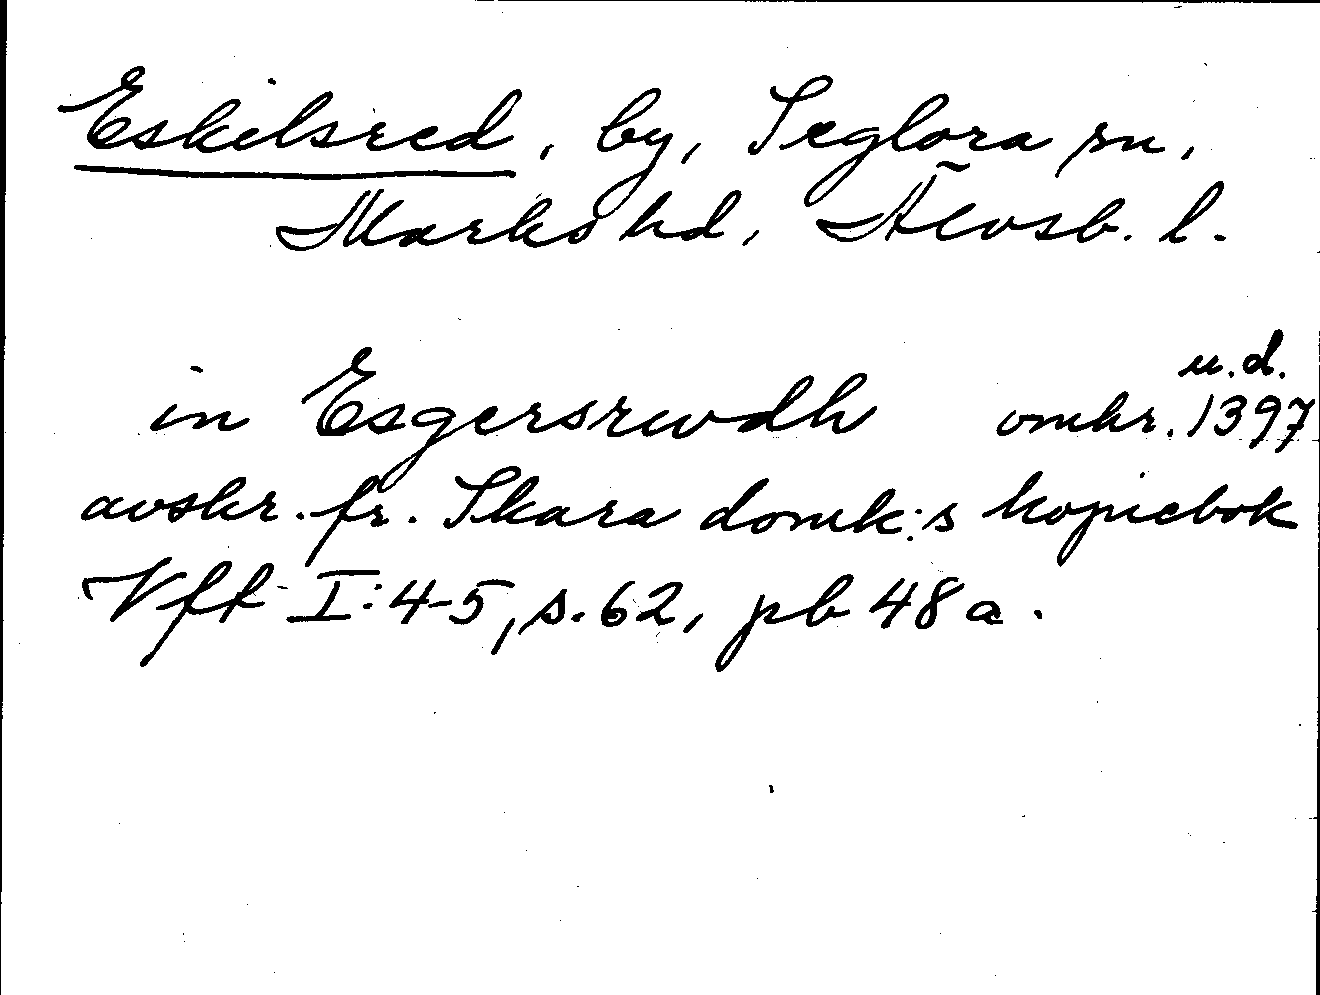 Eskilsred, by, Seglora sn,
Marks hd, Älvsb. l.
u.d.
in Esgersrwdh omkr. 1397
avskr. fr. Skara domk:s kopiebok
Vff I:4-5, s. 62, pb 48 a.